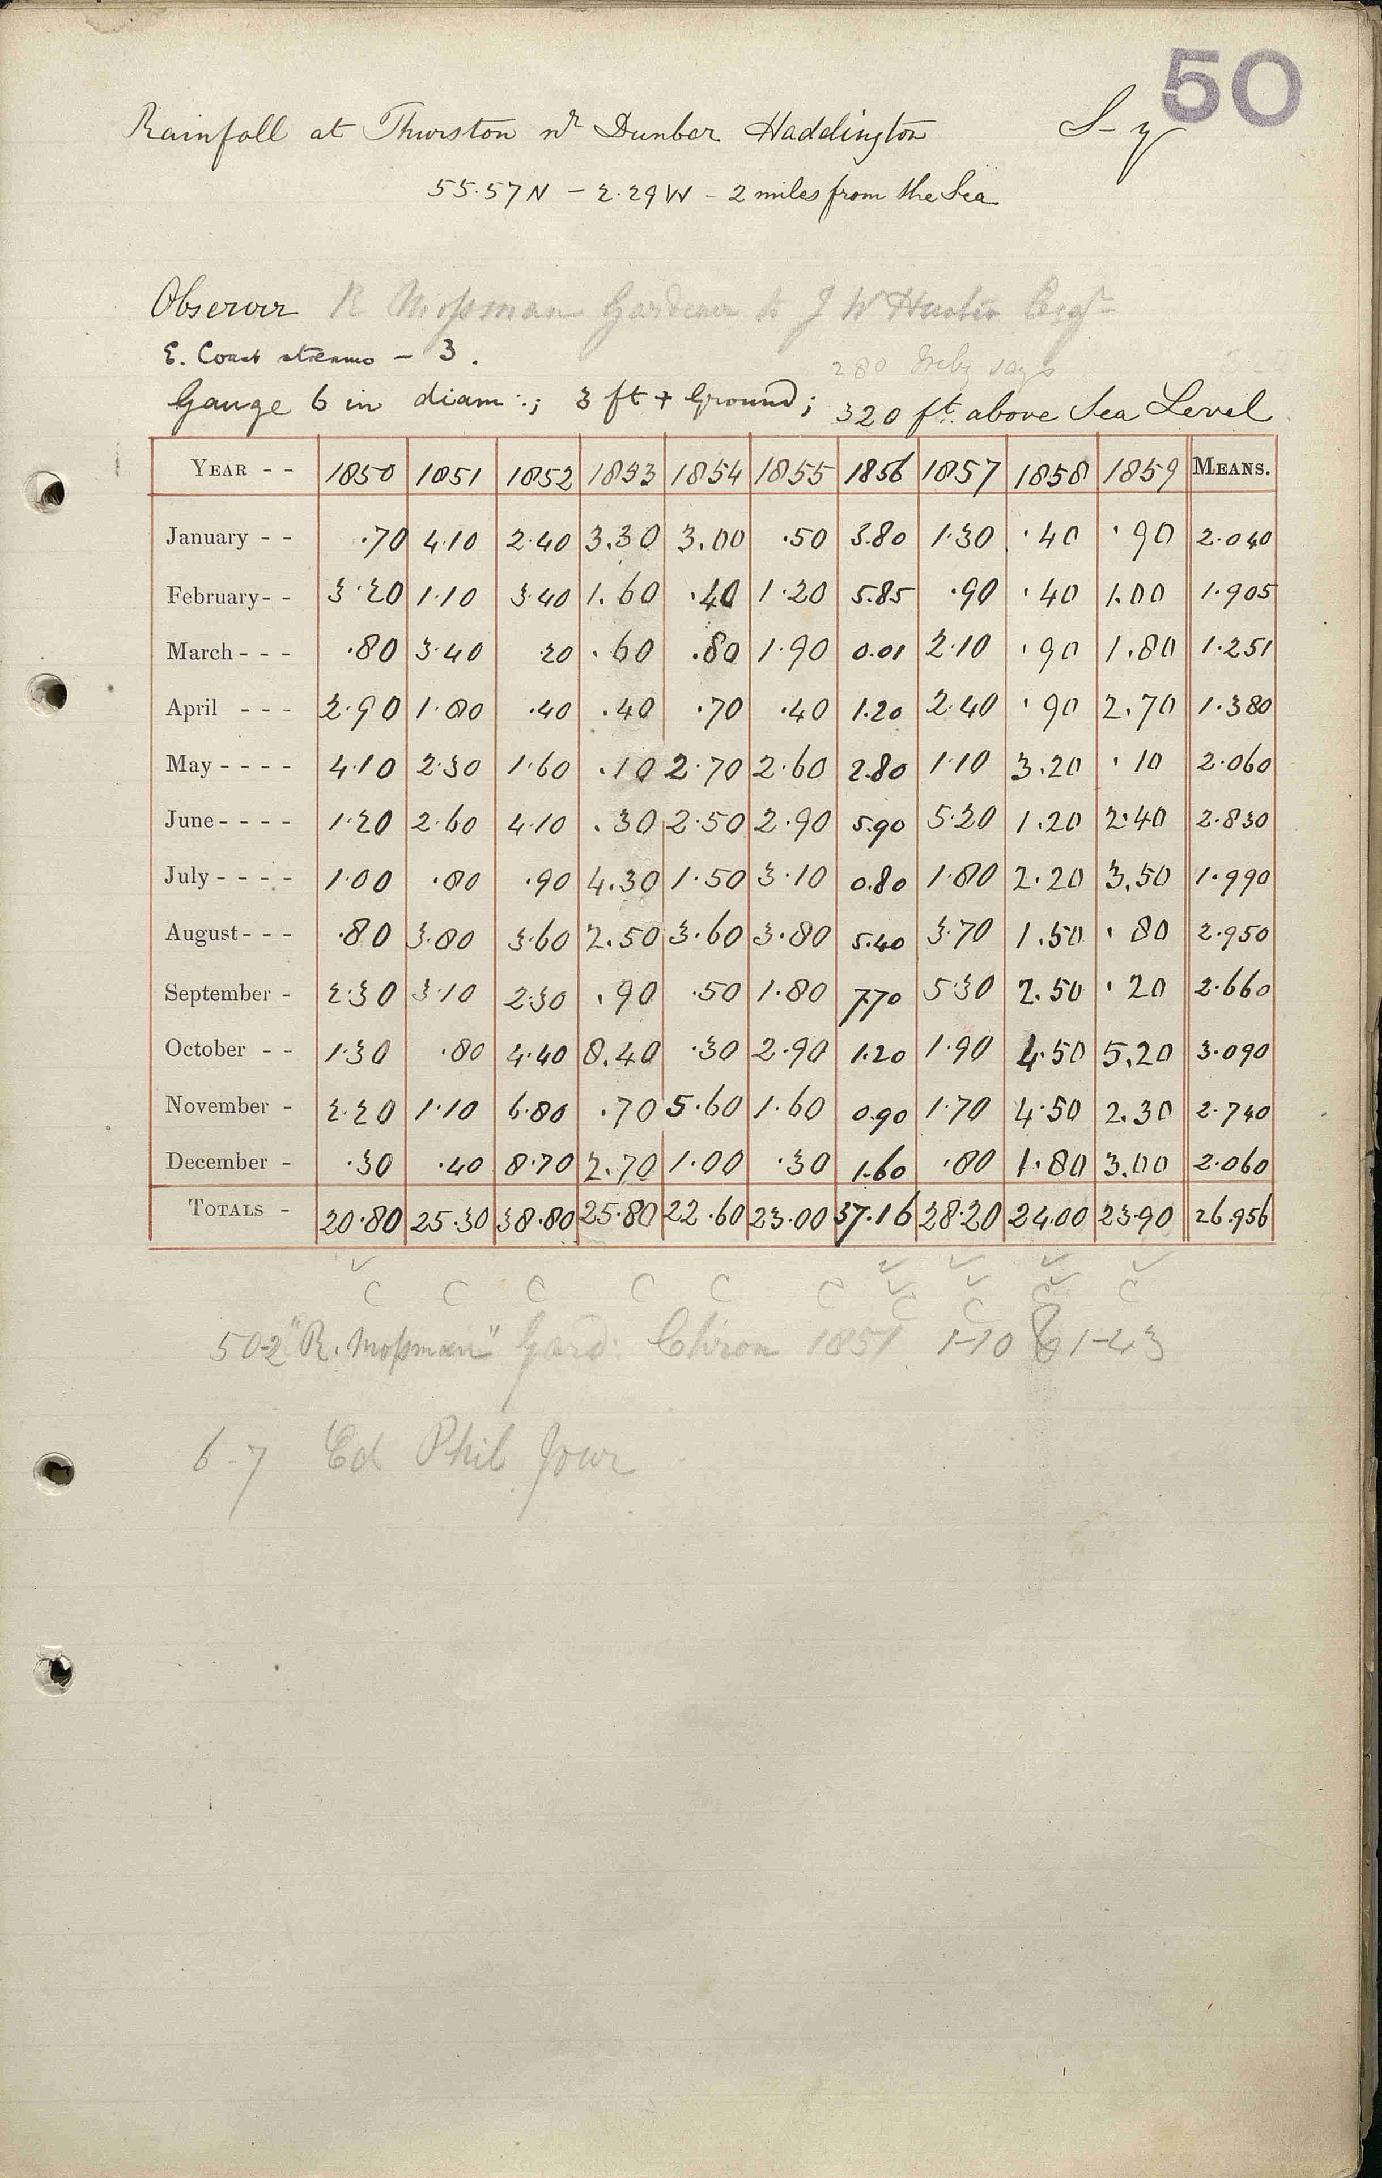 50
Rainfall at Thurston nr Dunbar Haddington S-y
55.57 N - 2.29 W - 2 miles from the Sea
Observer R Mossman Gardener to J W Hunter Esqr
E. Coast streams - 3.
280 says
Gauge 6 in diam.; 3 ft + Ground; 320 ft. above Sea Level
YEAR - - 1850 1851 1852 1853 1854 1855 1856 1857 1858 1859 MEANS.
January - - .70 4.10 2.40 3.30 3.00 .50 3.80 1.30 .40 .90 2.040
February - - 3.20 1.10 3.40 1.60 .40 1.20 5.85 .90 .40 1.00 1.905
March - - - .80 3.40 .20 .60 .80 1.90 0.01 2.10 .90 1.80 1.251
April - - - 2.90 1.80 .40 .40 .70 .40 1.20 2.40 .90 2.70 1.380
May - - - - 4.10 2.30 1.60 .10 2.70 2.60 2.80 1.10 3.20 .10 2.060
June - - - - 1.20 2.60 4.10 .30 2.50 2.90 5.90 5.20 1.20 2.40 2.830
July - - - - 1.00 .80 .90 4.30 1.50 3.10 0.80 1.80 2.20 3.50 1.990
August - - - .80 3.80 3.60 2.50 3.60 3.80 5.40 3.70 1.50 .80 2.950
September - 2.30 3.10 2.30 .90 .50 1.80 7.70 5.30 2.50 .20 2.660
October - - 1.30 .80 4.40 8.40 .30 2.90 1.20 1.90 4.50 5.20 3.090
November - 2.20 1.10 6.80 .70 5.60 1.60 0.90 1.70 4.50 2.30 2.740
December - .30 .40 8.70 2.70 1.00 .30 1.60 .80 1.80 3.00 2.060
TOTALS - 20.80 25.30 38.80 25.80 22.60 23.00 37.16 28.20 24.00 23.90 26.956
C C C C C C C C C C
50-2 "R. Mossman" Gard: Chron 1851 1-10 & 1-23
6-7 Ed Phil Jour